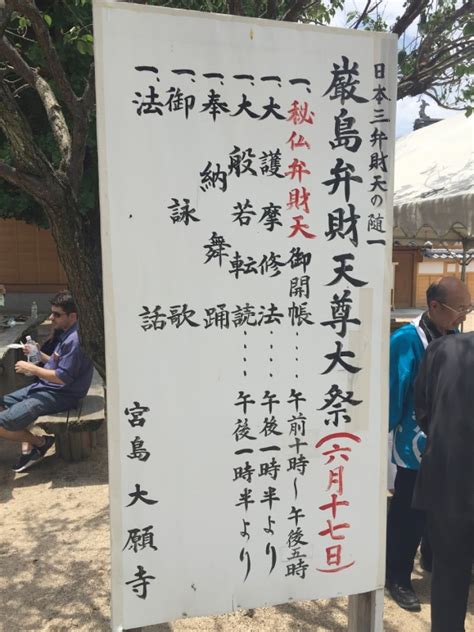 日本三弁財天の随一
厳島弁財天尊大祭(六月十七日)
一、秘仏弁財天御開帳‥‥午前十時～午後五時
一、大護摩修法‥‥午後一時半より
一、大般若転読‥‥午後一時半より
一、奉納舞踊
一、御詠歌
一、法話
宮島大願寺